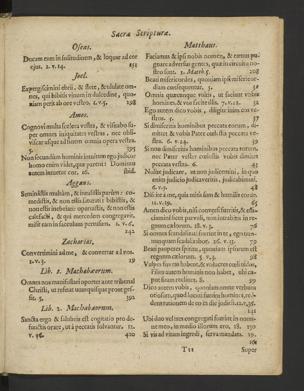 Sacræ Scripturæ.
Oseas.
Ducam eam in solitudinem, & loquar ad cor
ejus. 2. v. 14. 253
Joel.
Expergiscimini ebrii, & flete, & ululate om-
nes, qui bibitis vinum in dulcedine, quo-
niam periit ab ore vestro. 1. v. 5. 298
Amos.
Cognovi multa scelera vestra, &
super omnes iniquitates vestras, nec obli-
viscar usque ad finem omnia opera vestra.
395
Non secundum hominis intuitum ego judico:
homo enim videt, quæ parent: Dominus
autem intuetur cor. 16 ibid.
Aggæus.
Seminastis multùm, & intulistis parùm: co-
medistis, & non estis satiati: bibistis, &
non estis inebriati: operuistis, & non estis
calefacti, & qui mercedem congregavit,
misit eam in sacculum pertusum. 1. v. 6.
242
Zacharias.
Convertimini ad me, & convertar ad vos.
1. v. 3. 19
Lib. 1. Machabæorum.
Omnes nos manifestari oportet ante tribunal
Christi, ut referat unusquisque prout ges-
sit. 5. 392
Lib. 2. Machabæorum.
Sancta ergo & salubris est cogitatio pro de-
functis orare, ut à peccatis solvantur. 12.
v. 46. 420
Matthæus.
Faciamus & ipsi nobis nomen, & eamus pu-
gnare adversus gentes, quæ in circuitu no-
stro sunt. 1. Math. 5. 208
Beati misericordes, quoniam ipsi misericor-
diam consequentur. 5. 36
Omnia quæcunque vultis, ut faciant vobis
homines, & vos facite illis. 7. v. 12. 32
Ego autem dico vobis, diligite inimicos ve-
stros. 5. 37
Si dimiseritis hominibus peccata eorum, di-
mittet & vobis Pater cælestis peccata ve-
stra. 6. v. 14. 39
Si non dimiseritis hominibus peccata eorum,
nec Pater vester cælestis vobis dimittet
peccata vestra. 6 43
Nolite judicare, ut non judicemini, in quo
enim judicio judicaveritis, judicabimini.
6. v. 3. 48
Discite à me, quia mitis sum & humilis corde.
11. v. 29. 65
Amen dico vobis, nisi conversi fueritis, & effi-
ciamini sicut parvuli, non intrabitis in re-
gnum cælorum. 18. v. 3. 78
Beati pauperes spiritu, quoniam ipsorum est
regnum cælorum. 5. v. 3. 98
Vulpes foveas habent, & volucres cæli nidos,
filius autem hominis non habet, ubi ca-
put reclinet. 8. 99
Ubi enim duo vel tres congregati fuerint in
nomine meo, in medio illorum ero. 18. 150
Si vis ad vitam ingredi, serva mandata. 19.
161
Ttt Super